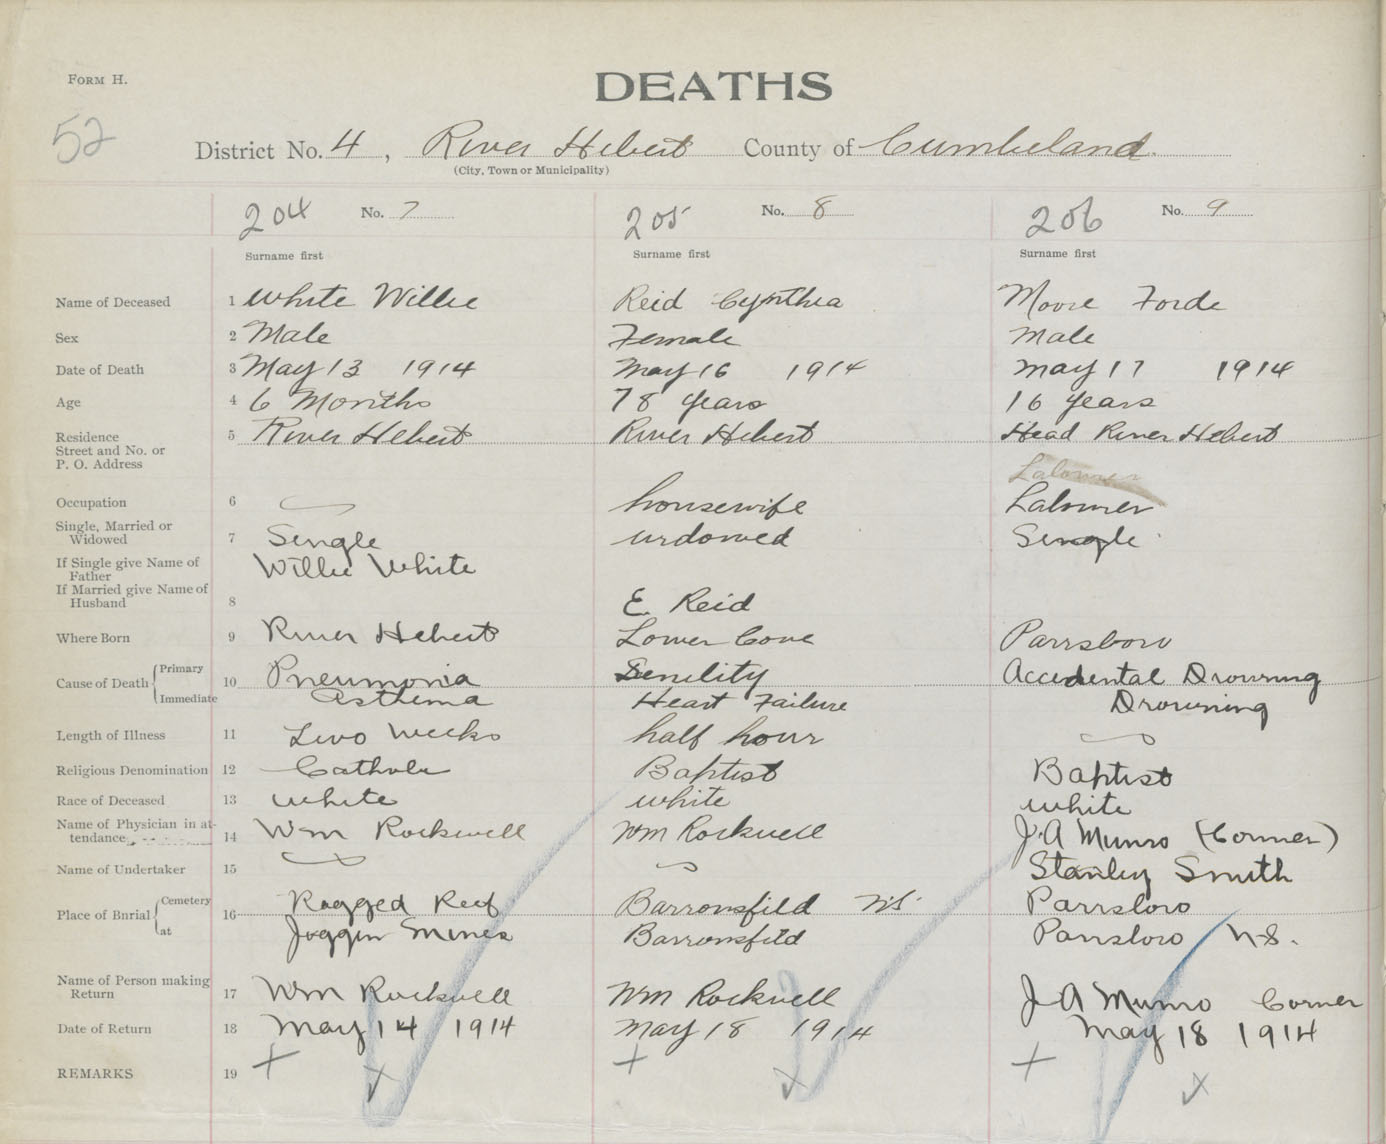 FORM H.
DEATHS
52
District No. 4, River Hebert County of Cumbeland
(City, Town or Municipality)
204 No. 7 205 No. 8 206 No. 9
Surname first Surname first Surname first
Name of Deceased 1 White Willie Reid Cynthia Moore Forde
Sex 2 Male Female Male
Date of Death 3 May 13 1914 May 16 1914 May 17 1914
Age 4 6 Months 78 years 16 years
Residence 5 River Hebert River Hebert Head River Hebert
Street and No. or
P. O. Address
Labourer
Occupation 6 housewife Labourer
Single, Married or
Widowed 7 Single widowed Single
If Single give Name of
Father Willie White
If Married give Name of
Husband 8 E. Reid
Where Born 9 River Hebert Lower Cove Parrsboro
Cause of Death Primary 10 Pneumonia Senility Accidental Drowning
Immediate Asthema Heart Failure Drowning
Length of Illness 11 Two Weeks half hour
Religious Denomination 12 Catholic Baptist Baptist
Race of Deceased 13 White white White
Name of Physician in at-
tendance 14 Wm Rockwell Wm Rockwell J A Munro (Corner)
Name of Undertaker 15 Stanley Smith
Place of Burial Cemetery 16 Ragged Reef Barronsfield N.S. Parrsboro
at Joggin Mines Barronsfield Parrsboro N.S.
Name of Person making
Return 17 Wm Rockwell Wm Rockwell J A Munro Corner
Date of Return 18 May 14 1914 May 18 1914 May 18 1914
REMARKS 19